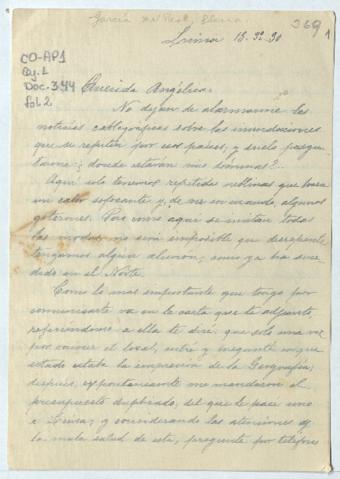 369 1
Lima 18. 3º. 30
CO-AP1
Doc. 344
fol. 2.
Querida Angélica:
No dejan de alarmarme las
noticias cablegráficas sobre las inundaciones
que se repiten por esos países, y suelo pregun-
tarme ¿donde estarán mis
Aquí solo tenemos repetidas neblinas que
un calor sofocante y, de vez en cuando, algunos
goterones. Pero como aquí se imitan todas
las modas, no será imposible que de repente
tengamos algun aluvion, como ya ha suce-
dido en el Norte.
Como lo mas importante que tengo por
comunicarte va en la carta que te adjunto,
refiriéndome a ella te diré que solo una vez
por conocer el local, entré y pregunté en que
estado estaba la impresion de la Geografía;
después, espontaneamente me mandaron el
presupuesto duplicado, del que le pacé uno
a Luisa; y considerando las atenciones y
la mala salud de esta, pregunté por teléfono